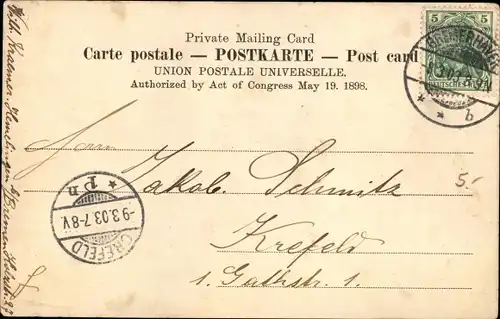 Private Mailing Card
Carte postale — POSTKARTE — Post card
UNION POSTALE UNIVERSELLE.
Authorized by Act of Congress May 19. 1898.
5 5
DEUTSCHES REICH
b
Herrn
Jakob. Schmitz
Krefeld
1. Gathstr. 1.
5.-
CREFELD
-9.3.03.7-8V.
* P n
Wilh. Kraemer, Hemelingen b/Bremen